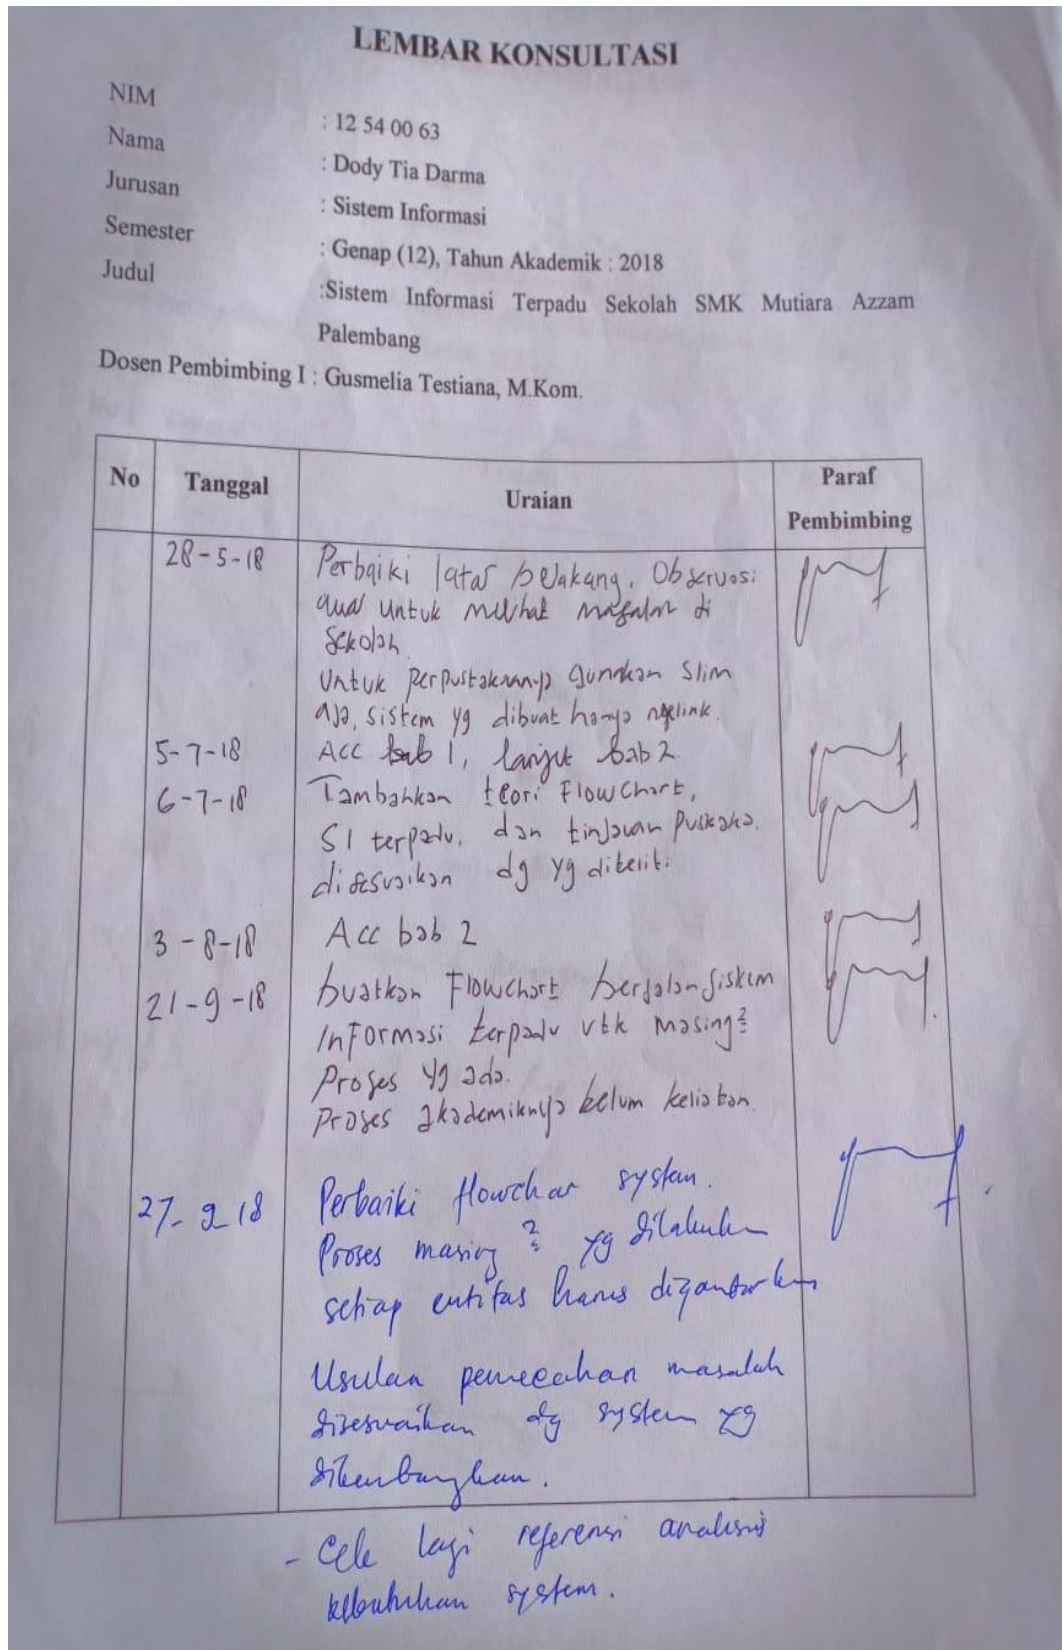 LEMBAR KONSULTASI
NIM : 12 54 00 63
Nama : Dody Tia Darma
Jurusan : Sistem Informasi
Semester : Genap (12), Tahun Akademik : 2018
Judul :Sistem Informasi Terpadu Sekolah SMK Mutiara Azzam
Palembang
Dosen Pembimbing I : Gusmelia Testiana, M.Kom.
No Tanggal Uraian Paraf
Pembimbing
28-5-18 Perbaiki latar belakang. Observasi
awal untuk melihat masalah di
sekolah
Untuk perpustakaannya gunakan Slim
aja, sistem yg dibuat hanya ngelink.
5-7-18 Acc bab 1, lanjut bab 2
6-7-18 Tambahkan teori Flowchart,
SI terpadu, dan tinjauan pustaka.
disesuaikan dg yg diteliti
3-8-18 Acc bab 2
21-9-18 buatkan Flowchart berjalan sistem
Informasi terpadu utk masing2
Proses yg ada.
Proses akademiknya belum keliatan.
27-9-18 Perbaiki flowchar system.
Proses masing2 yg dilakukan
setiap entitas harus digambarkan
Usulan pemecahan masalah
disesuaikan dg system yg
dikembangkan.
- Cek lagi referensi analisis
kebutuhan system.